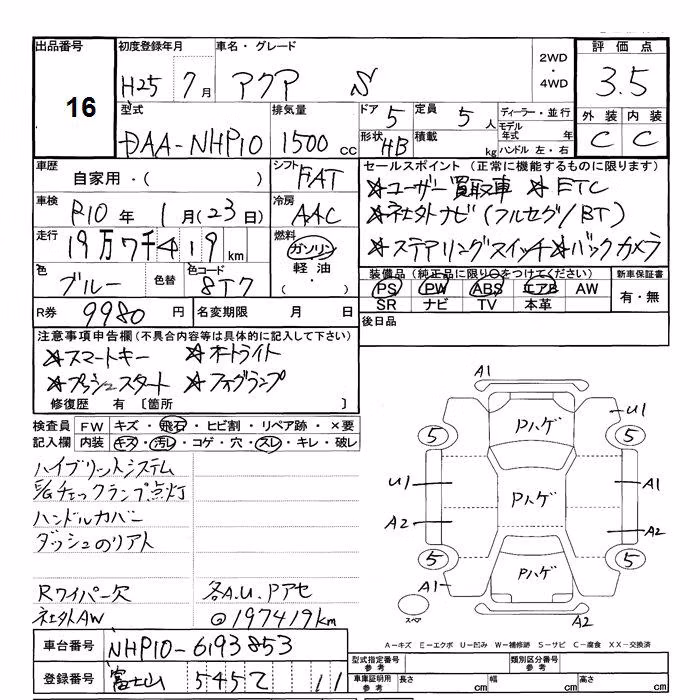 出品番号 初度登録年月 車名・グレード 2WD・4WD 評価点
16 H25 7月 アクア S 3.5
型式 排気量 ドア 5 定員 5人 ディーラー・並行 外装 内装
DAA-NHP10 1500cc 形状 HB 積載 kg モデル年式 年 C C
ハンドル 左・右
車歴 自家用・( ) シフト FAT セールスポイント (正常に機能するものに限ります)
車検 R10年 1月(23日) 冷房 AAC ☆ユーザー買取車 ☆ETC
☆社外ナビ(フルセグ/BT)
走行 19万7千419km 燃料 ガソリン 軽油 (・) ☆ステアリングスイッチ☆バックカメラ
色 ブルー 色替 色コード 8T7 装備品 (純正品に限り○をつけてください) 新車保証書
PS PW ABS エアB AW 有・無
SR ナビ TV 本革
R券 9980円 名変期限 月 日 後日品
注意事項申告欄(不具合内容等は具体的に記入して下さい)
☆スマートキー ☆オートライト
☆プッシュスタート ☆フォグランプ
修復歴 有 〔箇所 〕
検査員 FW キズ・飛石・ヒビ割・リペア跡・×要
記入欄 内装 キズ・汚レ・コゲ・穴・スレ・キレ・破レ
ハイブリットシステム
E/Gチェックランプ点灯
ハンドルカバー
ダッシュのリアト
Rワイパー欠 各A.U.Pアセ
社外AW ◎197419km
A1
Pハゲ U1
5 5
U1 Pハゲ A1
A2 A2
5 5
A1 Pハゲ
スペア A2
A-キズ E-エクボ U-凹み W-補修跡 S-サビ C-腐食 XX-交換済
車台番号 NHP10-6193853
型式指定番号 参考 類別区分番号 参考
登録番号 富士山 545 11
車庫証明用 参考 長さ cm 幅 cm 高さ cm